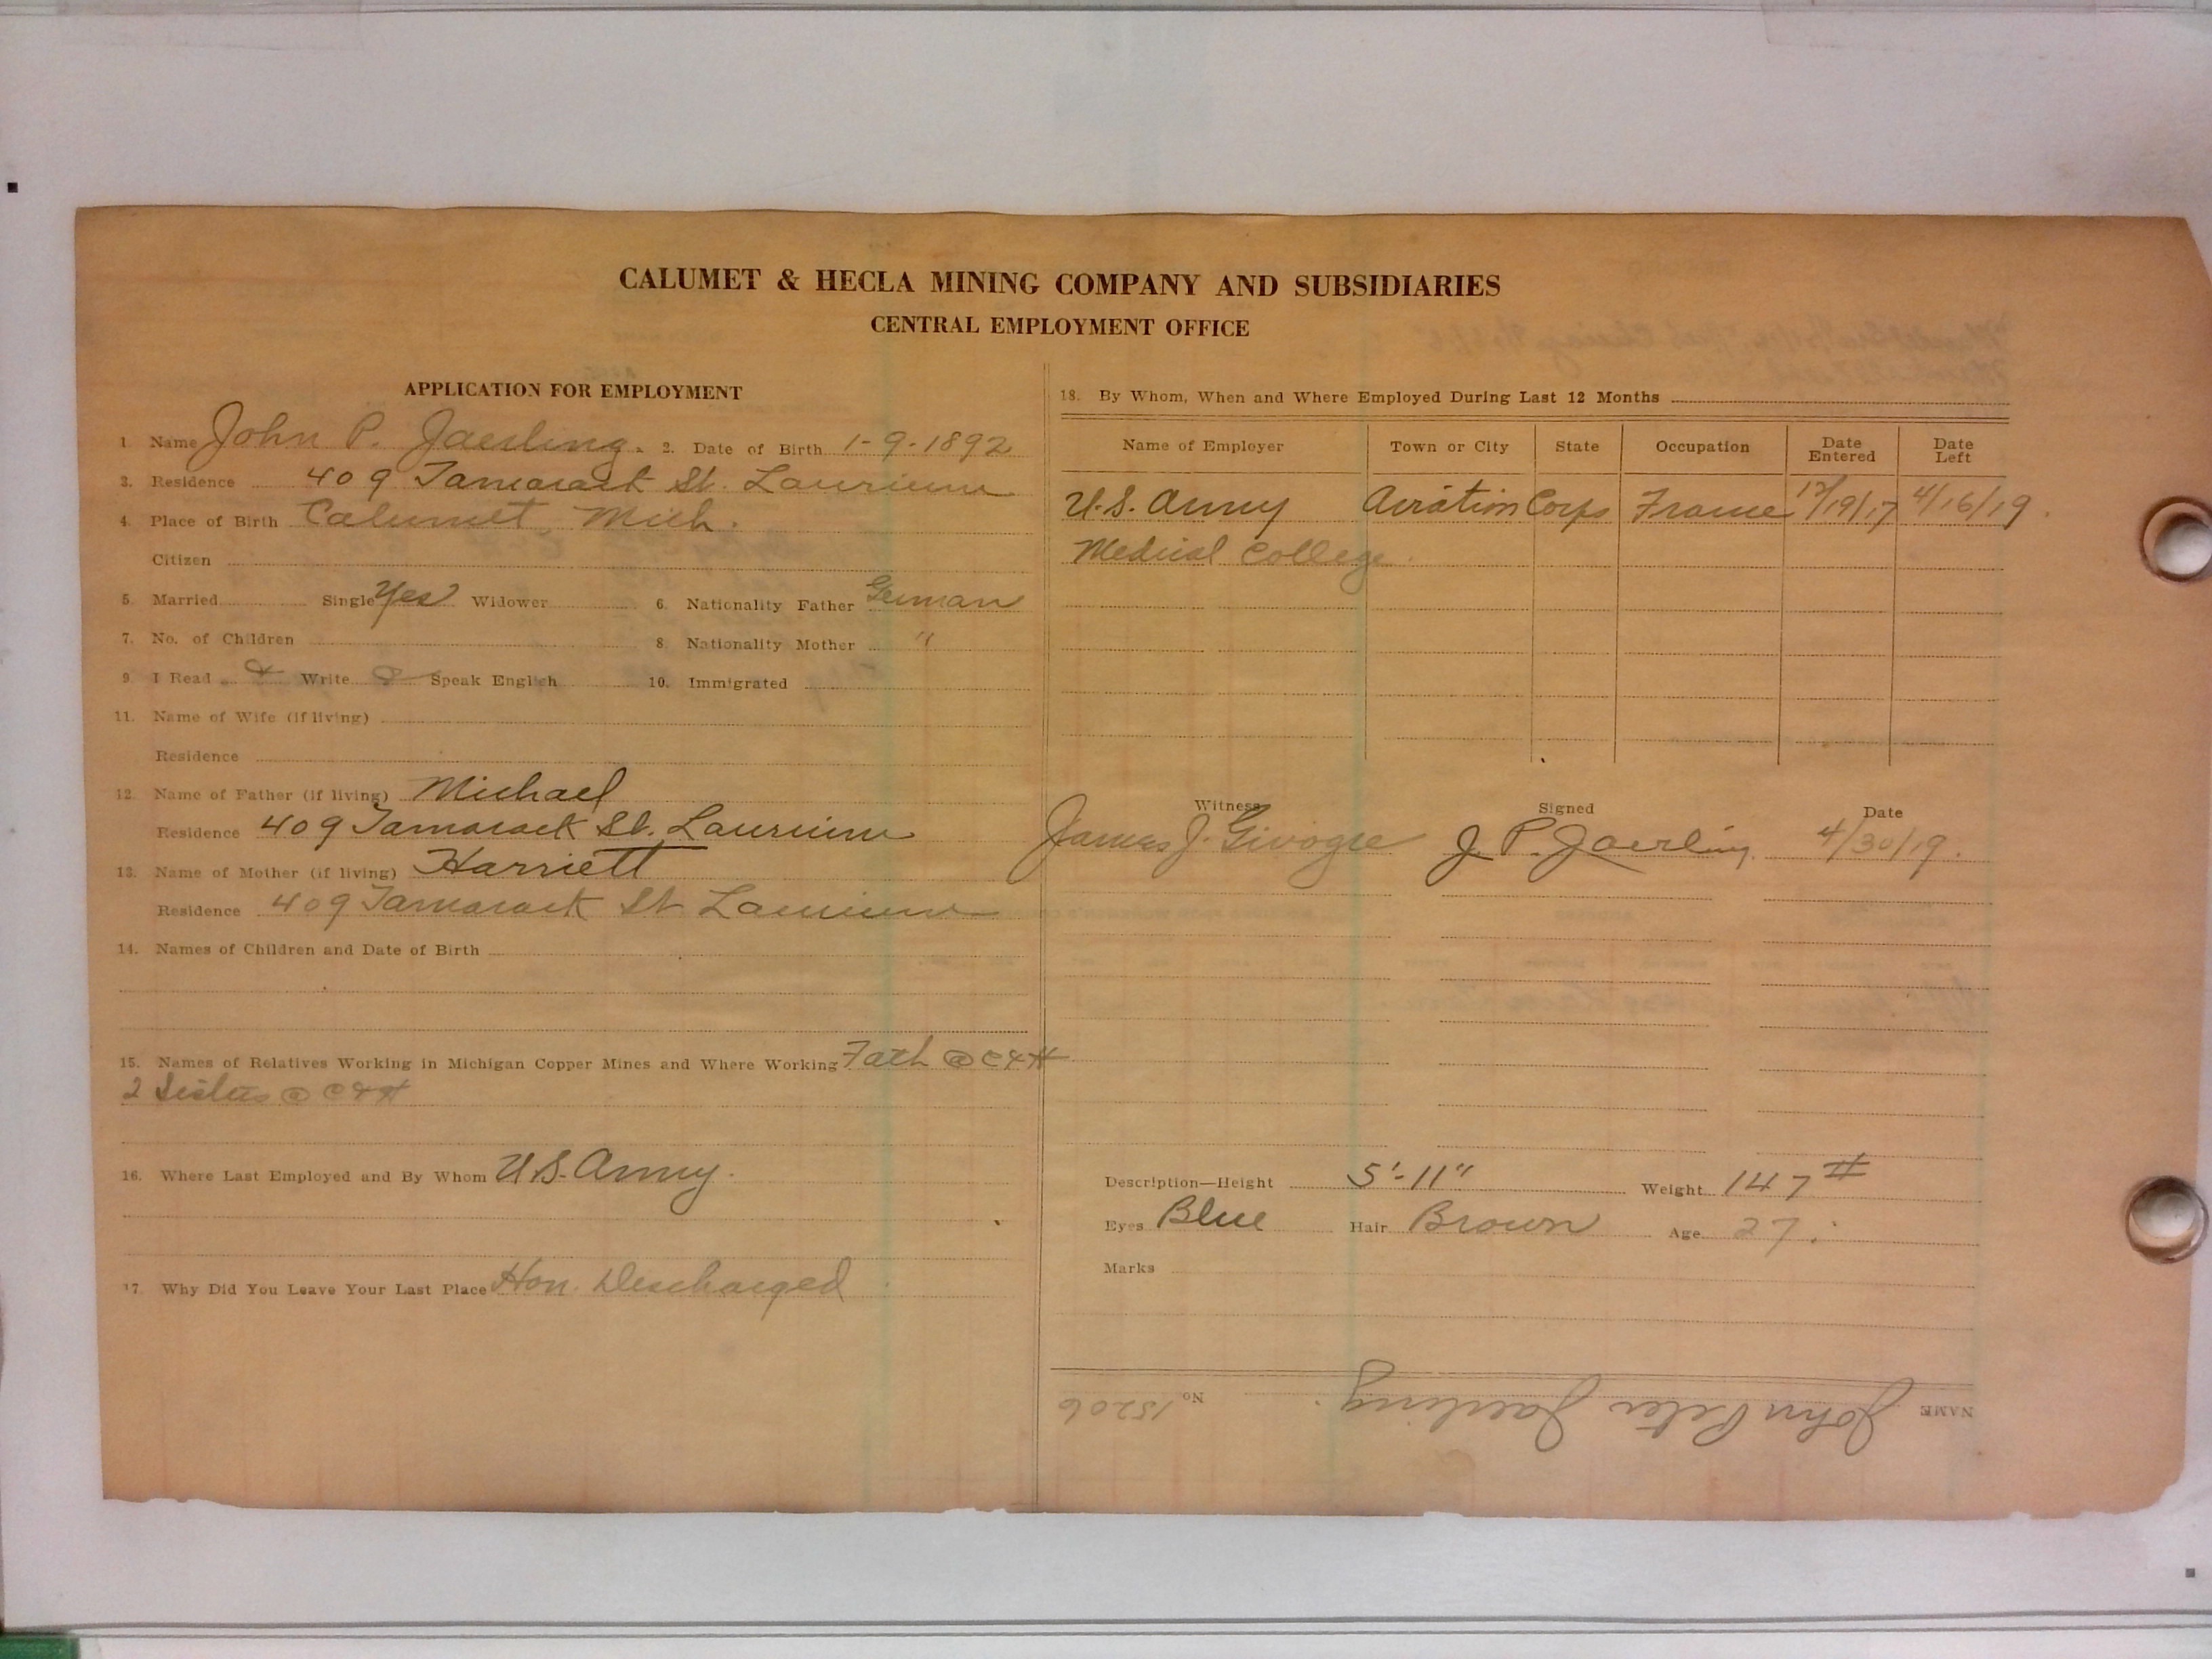 CALUMET & HECLA MINING COMPANY AND SUBSIDIARIES
CENTRAL EMPLOYMENT OFFICE
APPLICATION FOR EMPLOYMENT
1 Name John P. Jaerling. 2. Date of Birth 1-9-1892
3. Residence 409 Tamarack St. Laurium
4. Place of Birth Calumet, Mich.
Citizen
5. Married Single Yes Widower 6. Nationality Father German
7. No. of Children 8. Nationality Mother "
9. I Read & Write & Speak English 10. Immigrated
11. Name of Wife (if living)
Residence
12. Name of Father (if living) Michael
Residence 409 Tamarack St. Laurium
13. Name of Mother (if living) Harriett
Residence 409 Tamarack St Laurium
14. Names of Children and Date of Birth
15. Names of Relatives Working in Michigan Copper Mines and Where Working Fath @ C & H
2 Sisters @ C & H
16. Where Last Employed and By Whom U.S. Army.
17. Why Did You Leave Your Last Place Hon. Discharged
18. By Whom, When and Where Employed During Last 12 Months
Name of Employer Town or City State Occupation Date Entered Date Left
U.S. Army Aviation Corps France 12/19/17 4/16/19
Medical College
Witness Signed Date
James J. J. P. Jaerling. 4/30/19.
Description—Height 5'-11" Weight 147 #
Eyes Blue Hair Brown Age 27.
Marks
NAME John Peter Jaerling. No 15206